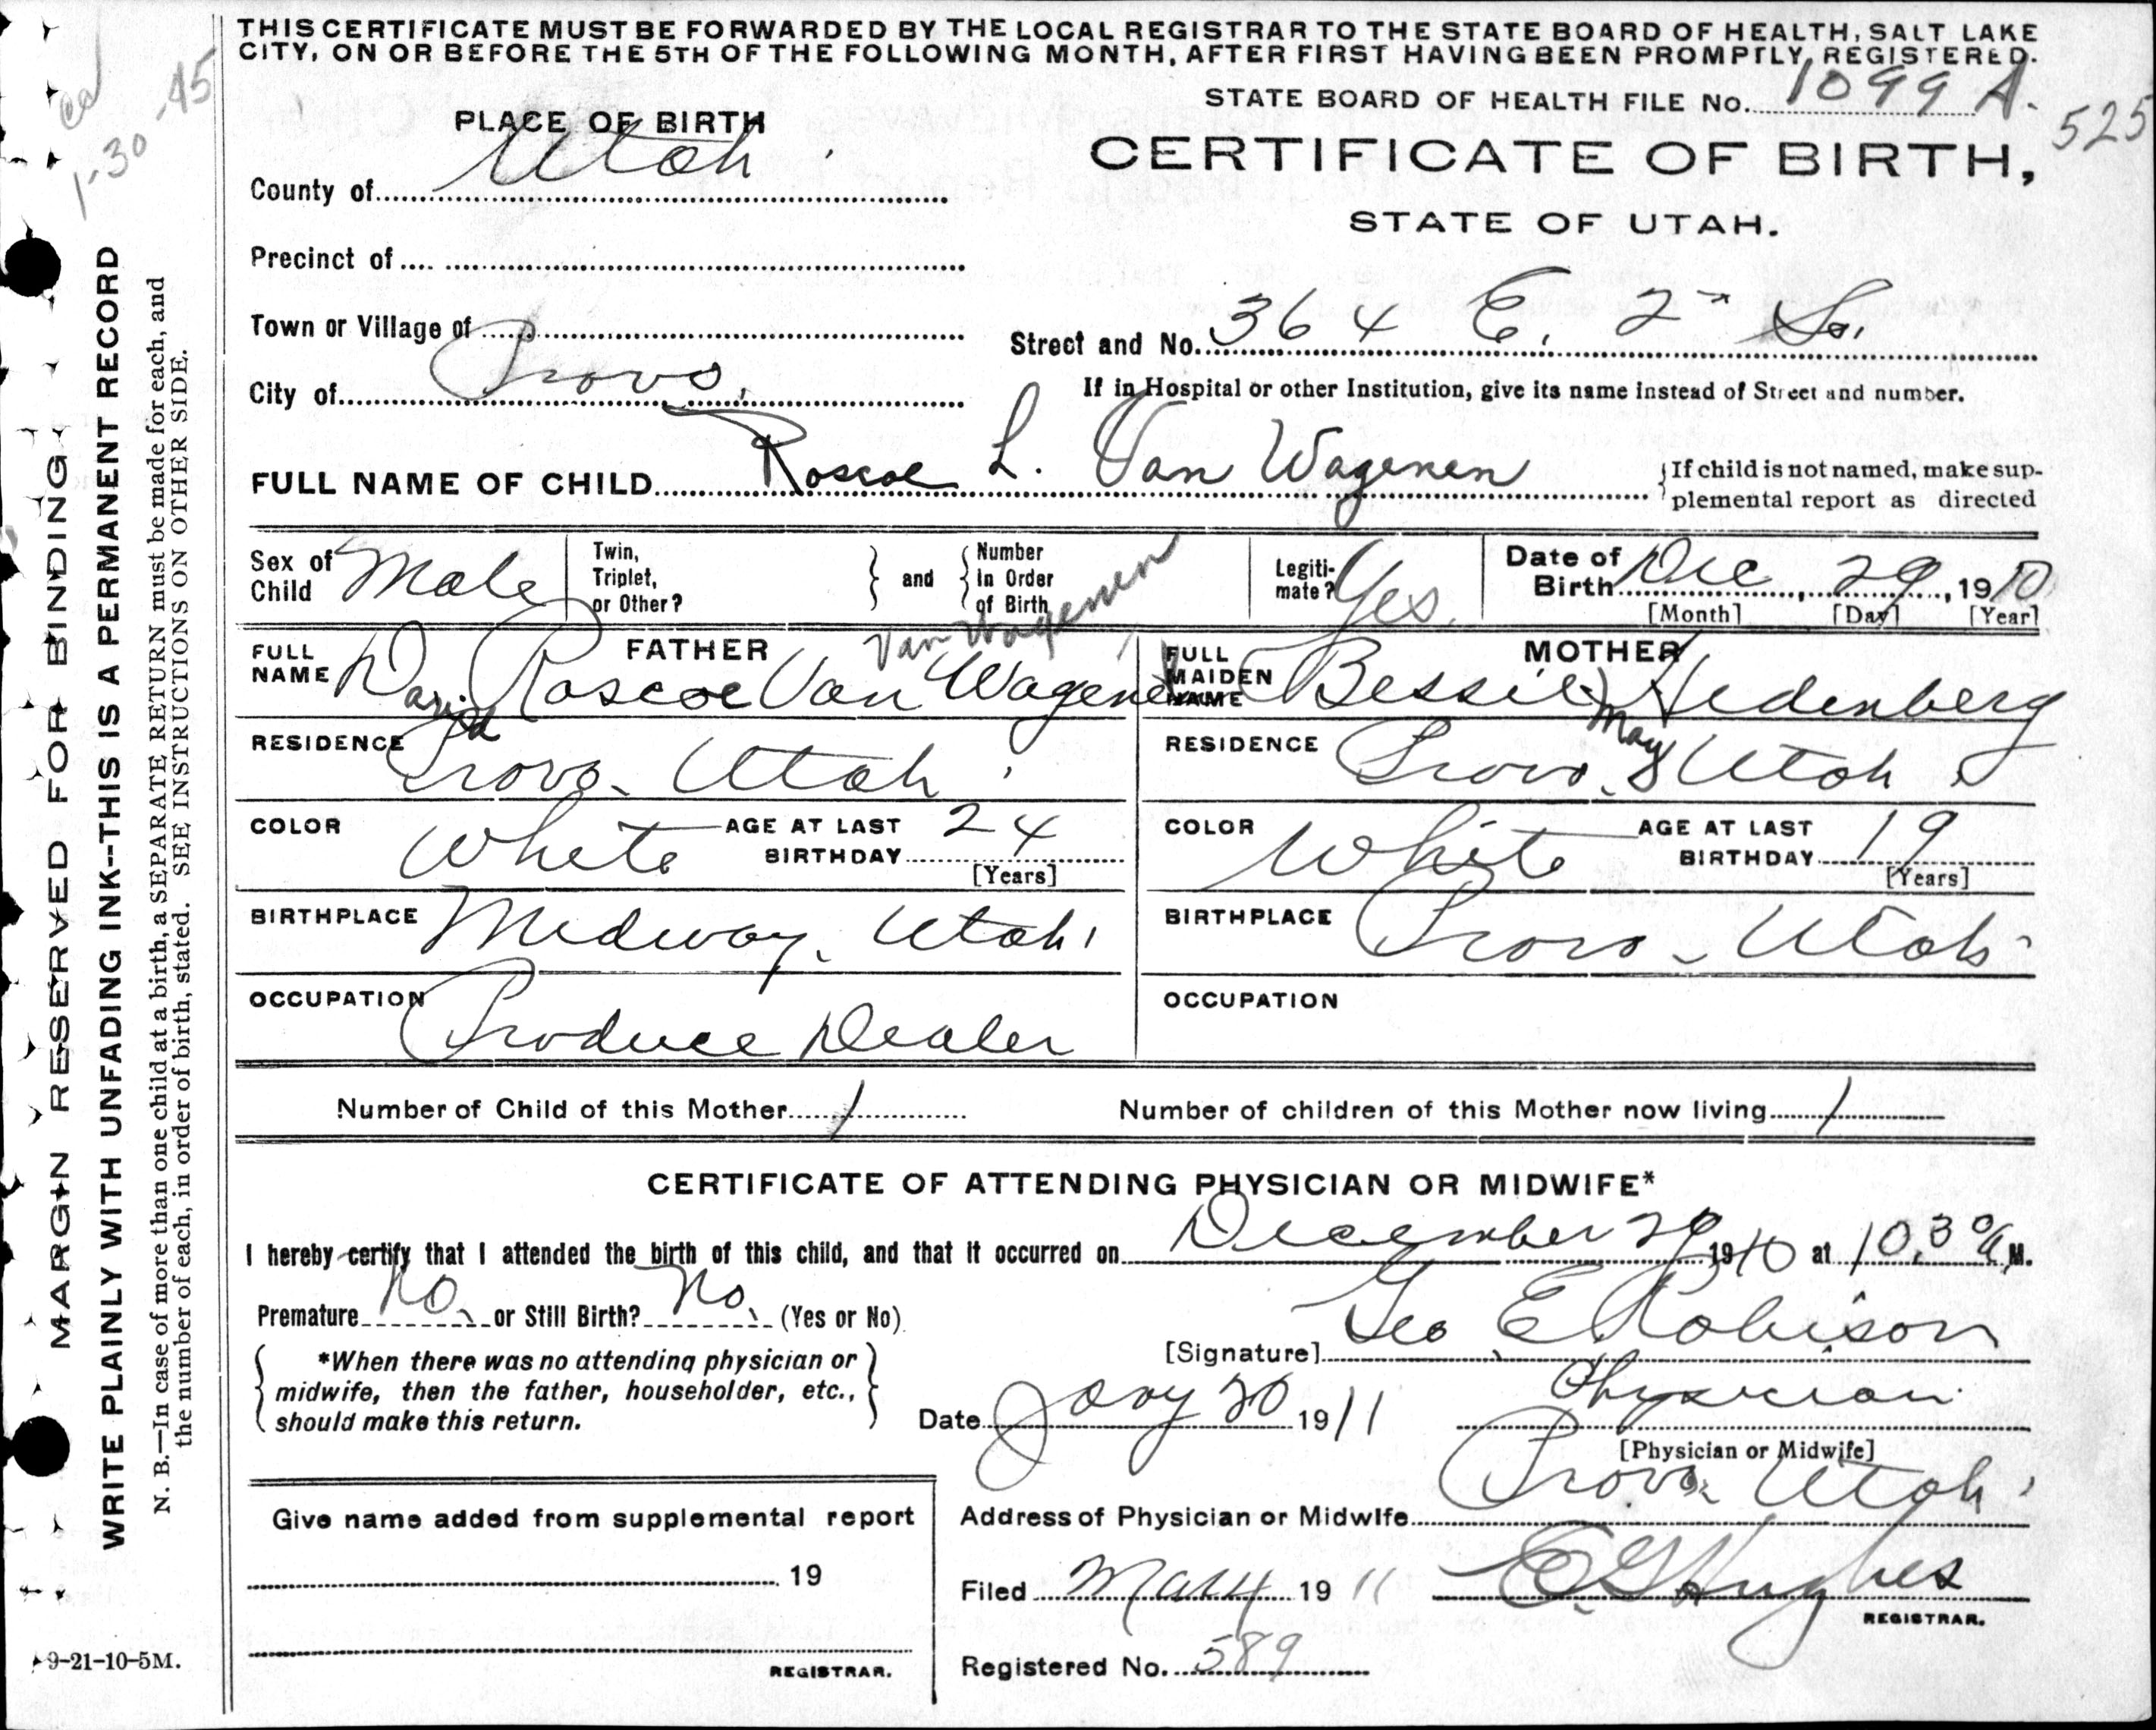 THIS CERTIFICATE MUST BE FORWARDED BY THE LOCAL REGISTRAR TO THE STATE BOARD OF HEALTH, SALT LAKE
CITY, ON OR BEFORE THE 5TH OF THE FOLLOWING MONTH, AFTER FIRST HAVING BEEN PROMPTLY REGISTERED.
STATE BOARD OF HEALTH FILE No. 1099 A.
525
1-30-45
PLACE OF BIRTH
CERTIFICATE OF BIRTH,
STATE OF UTAH.
County of Utah
Precinct of
Town or Village of
Street and No. 364 E. 2" So.
City of Provo.
If in Hospital or other Institution, give its name instead of Street and number.
FULL NAME OF CHILD Roscoe L. Van Wagenen
{If child is not named, make sup-
plemental report as directed
Sex of Child Male
Twin, Triplet, or Other?
and
Number In Order of Birth
Legiti-mate? Yes.
Date of Birth Dec 29, 1910
[Month] [Day] [Year]
FATHER
Van Wagenen
FULL NAME David Roscoe Van Wagenen
MOTHER
FULL MAIDEN NAME Bessie May Hedenberg
RESIDENCE Provo. Utah
RESIDENCE Provo. Utah
COLOR White
AGE AT LAST BIRTHDAY 24
[Years]
COLOR White
AGE AT LAST BIRTHDAY 19
[Years]
BIRTHPLACE Midway, Utah
BIRTHPLACE Provo - Utah
OCCUPATION Produce Dealer
OCCUPATION
Number of Child of this Mother 1
Number of children of this Mother now living 1
CERTIFICATE OF ATTENDING PHYSICIAN OR MIDWIFE*
I hereby certify that I attended the birth of this child, and that it occurred on December 29 1910 at 10.30 A M.
Premature No. or Still Birth? No. (Yes or No)
[Signature] Geo E Robison
*When there was no attending physician or
midwife, then the father, householder, etc.,
should make this return.
Date Jany 30 1911
Physician
[Physician or Midwife]
Give name added from supplemental report
19
REGISTRAR.
Address of Physician or Midwife Provo. Utah
Filed Mar 4 1911
E G Hughes
REGISTRAR.
Registered No. 589
9-21-10-5M.
MARGIN RESERVED FOR BINDING
WRITE PLAINLY WITH UNFADING INK--THIS IS A PERMANENT RECORD
N. B.—In case of more than one child at a birth, a SEPARATE RETURN must be made for each, and
the number of each, in order of birth, stated. SEE INSTRUCTIONS ON OTHER SIDE.